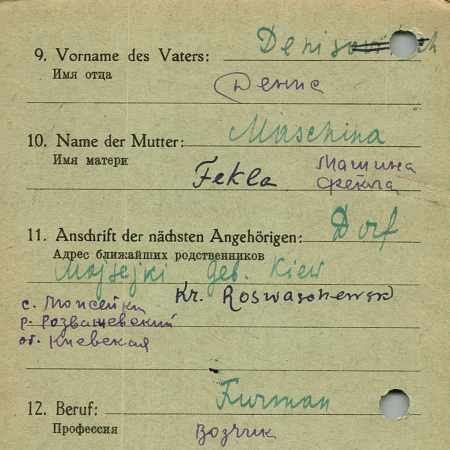 9. Vorname des Vaters: Denisowitch
Имя отца
Денис
10. Name der Mutter: Maschina
Имя матери
Fekla Машина
Фекла
11. Anschrift der nächsten Angehörigen: Dorf
Адрес ближайших родственников
Mojsejki Geb. Kiew
Kr. Roswaschewsk
с. Мойсейки
р. Розважевский
об. Киевская
12. Beruf: Furman
Профессия
возчик